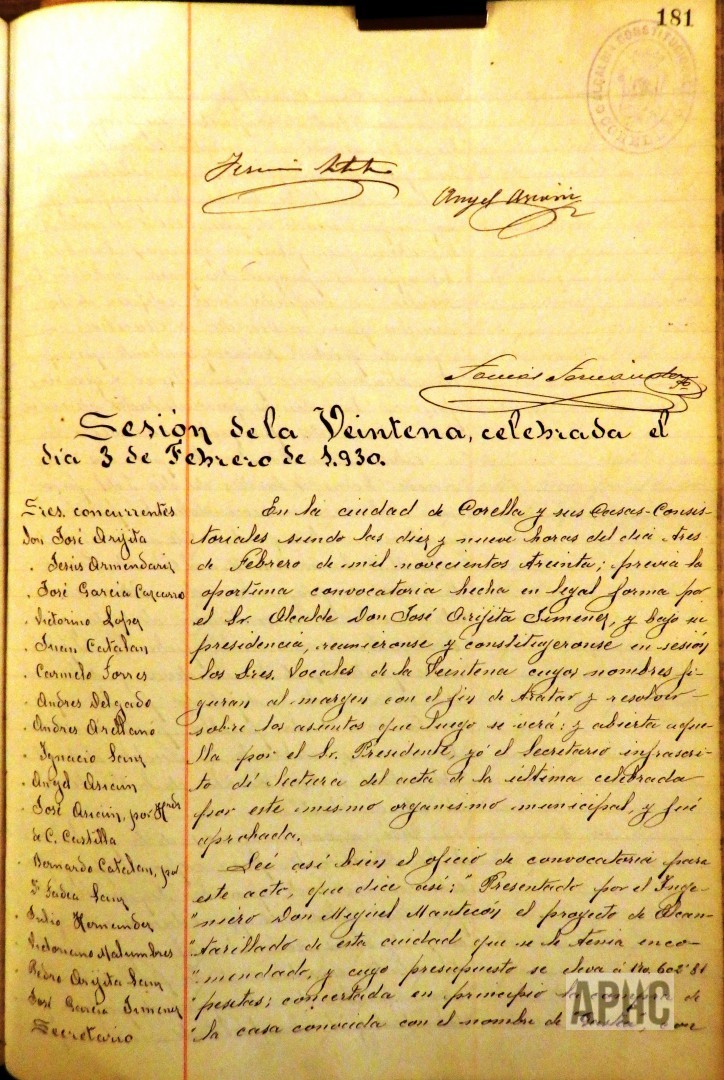 181
ALCALDIA CONSTITUCIONAL
CORELLA
Angel
Tomás
Sesión de la Veintena, celebrada el
día 3 de Febrero de 1.930.
Sres. concurrentes
Don José Arijita
" Jesús Armendariz
" José Garcia Cazcarro
" Victorino Lopez
" Juan Catalan
" Carmelo Torres
" Andres Delgado
" Andres Arellano
" Ignacio Sanz
" Angel
" José por
de C. Castilla
" Bernardo Catalan, por
Sanz
" Julio Hernandez
" Victoriano Malumbres
" Pedro Arijita Sanz
" José Garcia Jimenez
Secretario
En la ciudad de Corella y sus Casas-Consis-
toriales siendo las diez y nueve horas del dia tres
de Febrero de mil novecientos treinta; previa la
oportuna convocatoria hecha en legal forma por
el Sr. Alcalde Don José Arijita Jimenez, y bajo su
presidencia, reunieronse y constituyeronse en sesión
los Sres. Vocales de la Veintena cuyos nombres fi-
guran al margen con el fin de tratar y resolver
sobre los asuntos que luego se verá: y abierta aque-
lla por el Sr. Presidente, yó el Secretario infrascri-
to dí lectura del acta de la última celebrada
por este mismo organismo municipal, y fué
aprobada.
Leí así bien el oficio de convocatoria para
este acto, que dice así: "Presentado por el Inge-
"niero Don Miguel Mantecón el proyecto de Alcan-
"tarillado de esta ciudad que se le tenia enco-
"mendado, y cuyo presupuesto se eleva á
"pesetas; concertada en principio la compra de
"la casa conocida con el nombre de
APHC